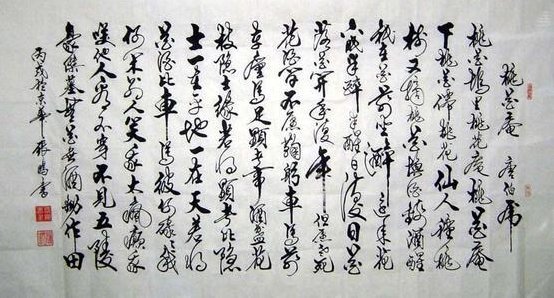 桃花庵 唐伯虎
桃花塢里桃花庵桃花庵
下桃花仙桃花仙人種桃
樹又摘桃花換酒錢酒醒
祗在花前坐酒醉還來花
下眠半醉半醒日復日花
落花開年復年但愿老死
花酒間不愿鞠躬車馬前
車塵馬足顯者事酒盞花
枝隱士緣若將顯者比隱
士一在平地一在天若將
花酒比車馬彼何碌碌我
何閑別人笑我太瘋癲我
嘆他人看不穿不見五陵
豪傑墓無花無酒鋤作田
丙戌於京華張鵬書